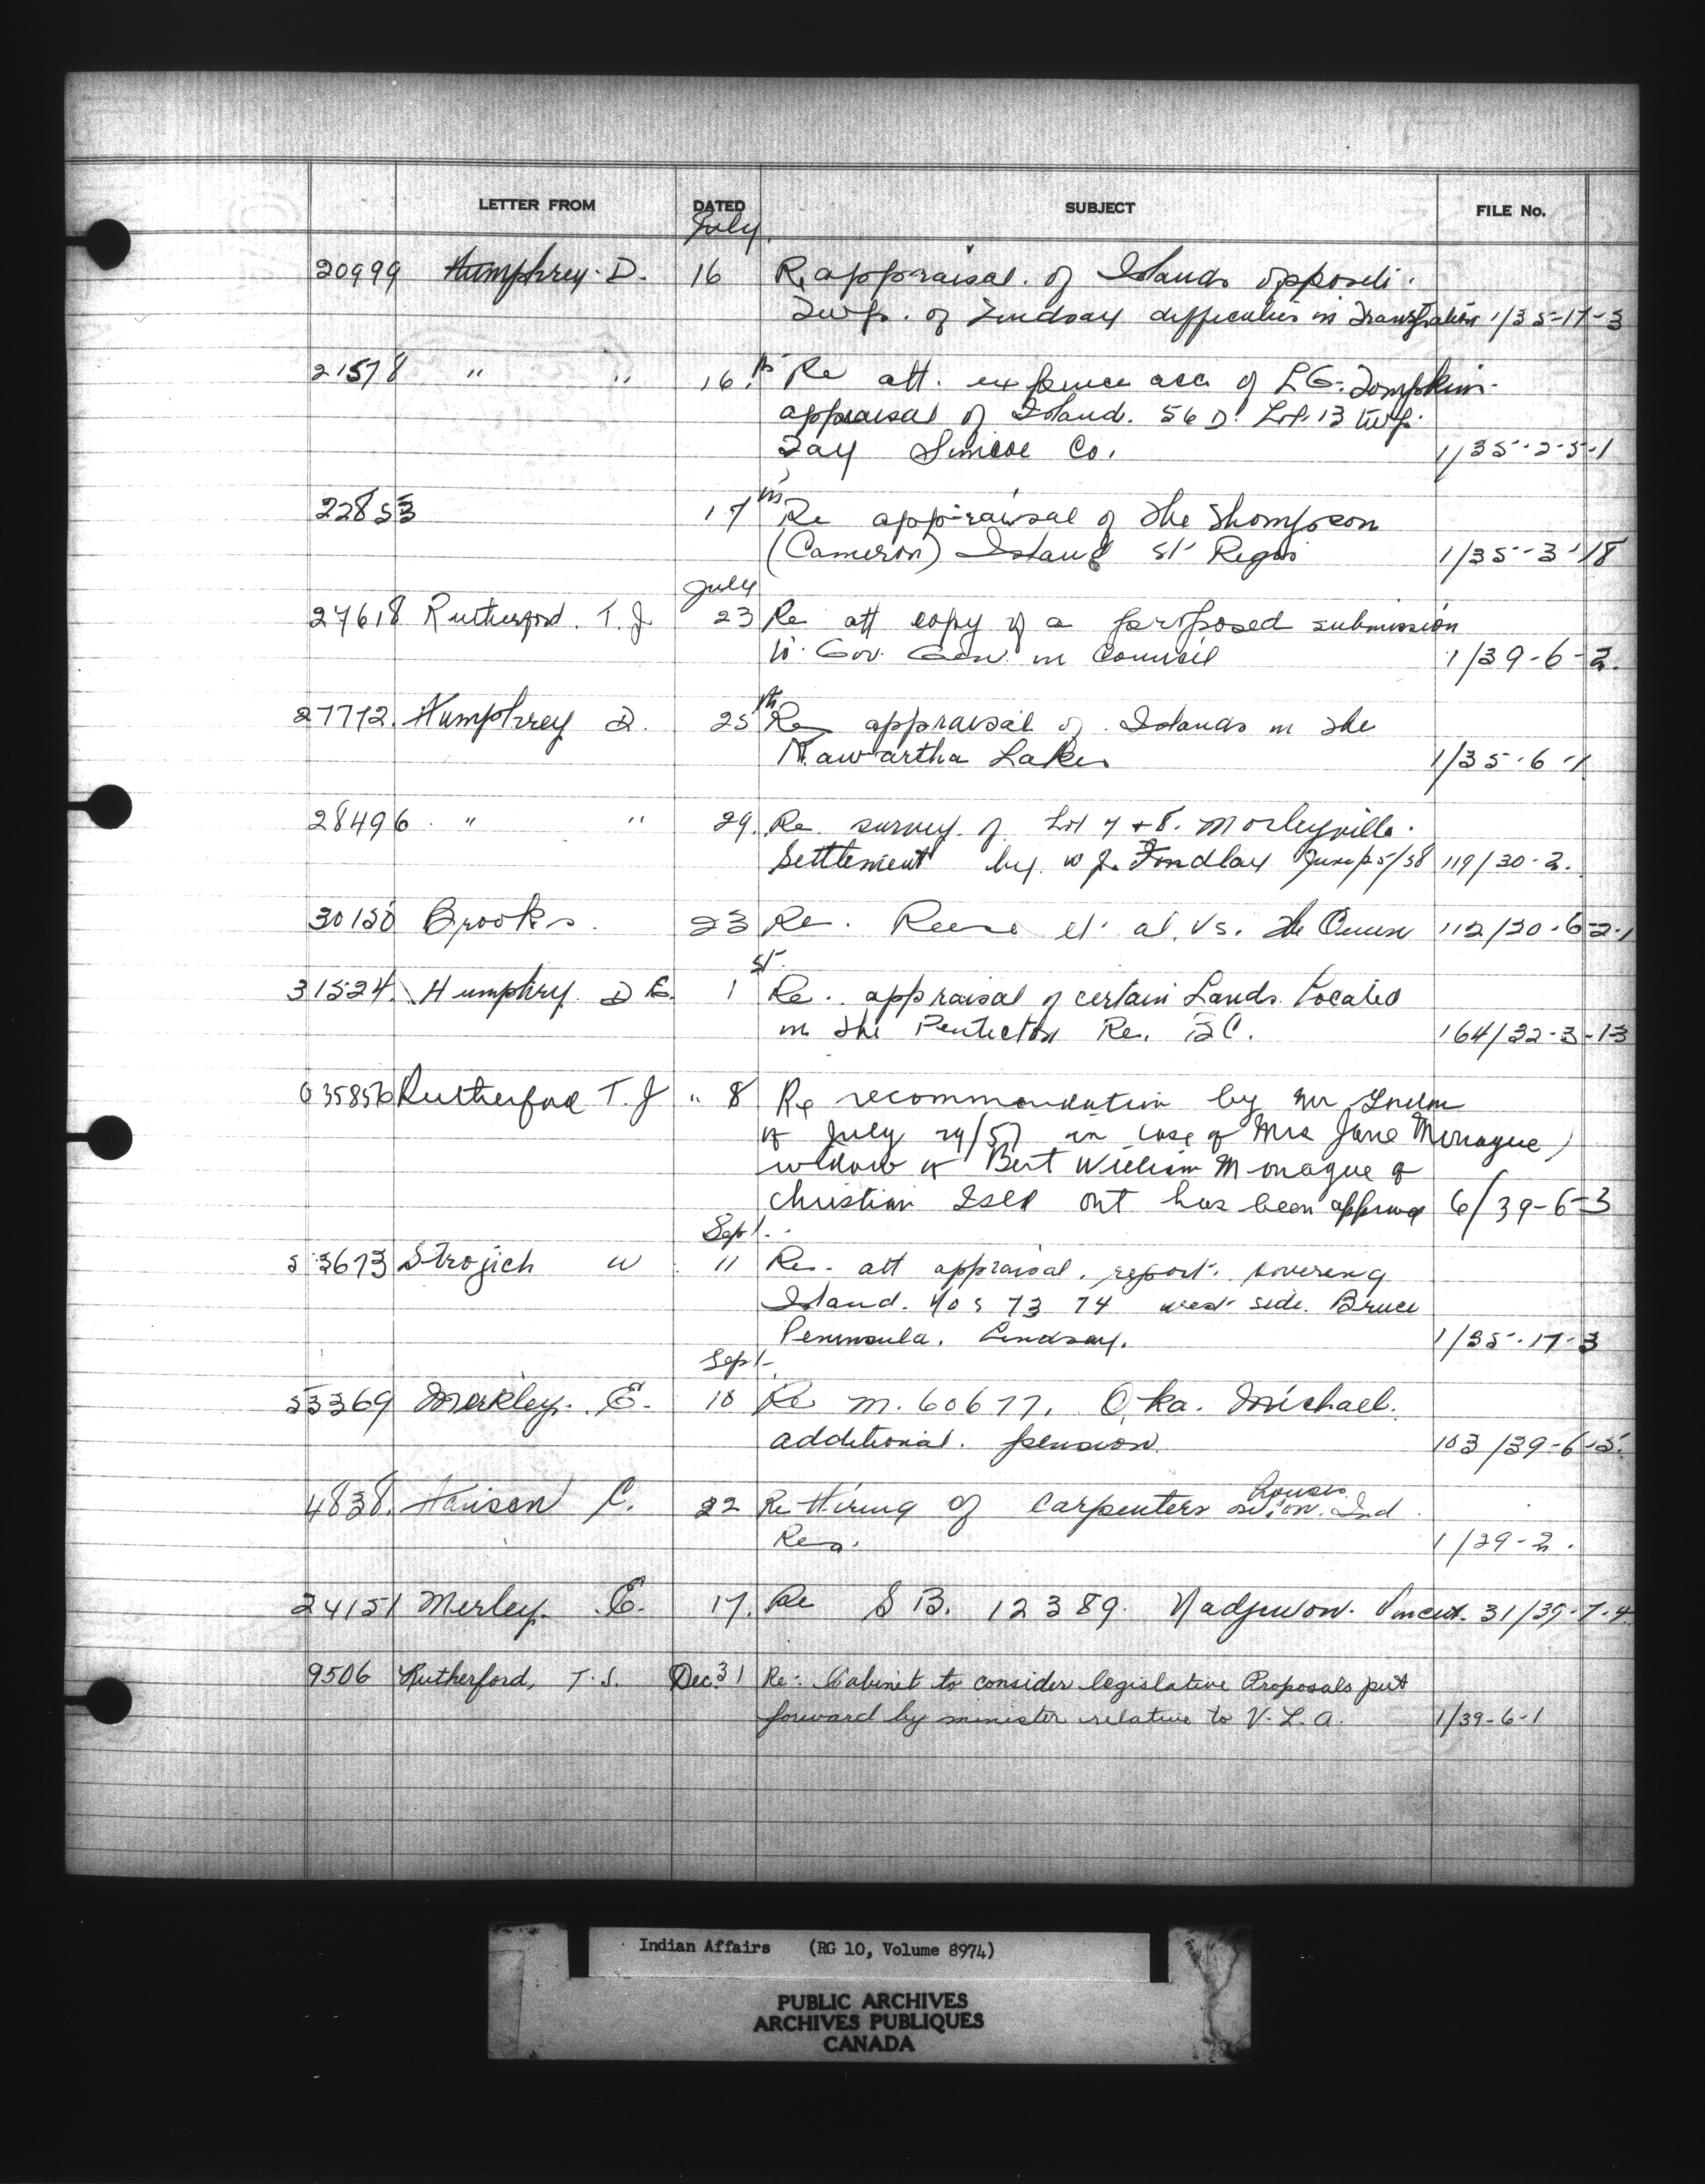 LETTER FROM DATED SUBJECT FILE No.
July
20999 Humphrey. D. 16 Re appraisal. of Islands opposite.
Twp. of Lindsay difficulties in 1/35-17-3
21578 " " 16. Re att. expense acc. of L G. Tompkin.
appraisal of Island. 56 D. Lot. 13 twp.
Tay Simcoe Co. 1/35-2-5-1
22853 17 Re appraisal of the Thompson
(Cameron) Island St Regis 1/35-3-18
July
27618 Rutherford. T. J 23 Re att copy of a proposed submission
to. Gov. Gen. in Council 1/39-6-2.
27712. Humphrey D. 25th Re appraisal of. Islands in the
Kawartha Lakes 1/35-6-1
28496 " " 29. Re. survey. of Lot 7 + 8. Morleyville.
Settlement by. W J. Findlay 119/30-2.
30150 Brooks. 23 Re. Reese et al. vs. the Queen 112/30-6-2-1
st
31524. Humphry. D E. 1 Re. appraisal of certain Lands. Located
in the Penticton Re. B C. 164/32-3-13
035856 Rutherford T. J " 8 Re recommendation by Mr
of July 29/57 in case of Mrs Jane Monague,
widow of Bert William Monague of
Christian Isld Ont has been approved 6/39-6-3
Sept.
53673 Strojich W 11 Re. att appraisal. report. covering
Island. Nos 73 74 west side. Bruce
Peninsula. Lindsay. 1/35-17-3
Sept.
53369 Markley. E. 10 Re M. 60677. Oka. Michael.
additional. pension. 103/39-6-5.
houses
4838. Hansen C. 22 Re Hiring of carpenters on. Ind
Res. 1/29-2.
24151 Merley. E. 17. Re S B. 12389. Nadjiwon. Vincent. 31/39-7-4
9506 Rutherford, T. S. Dec. 31 Re: Cabinet to consider legislative Proposals put
forward by minister relative to V. L. A. 1/39-6-1
Indian Affairs (RG 10, Volume 8974)
PUBLIC ARCHIVES
ARCHIVES PUBLIQUES
CANADA